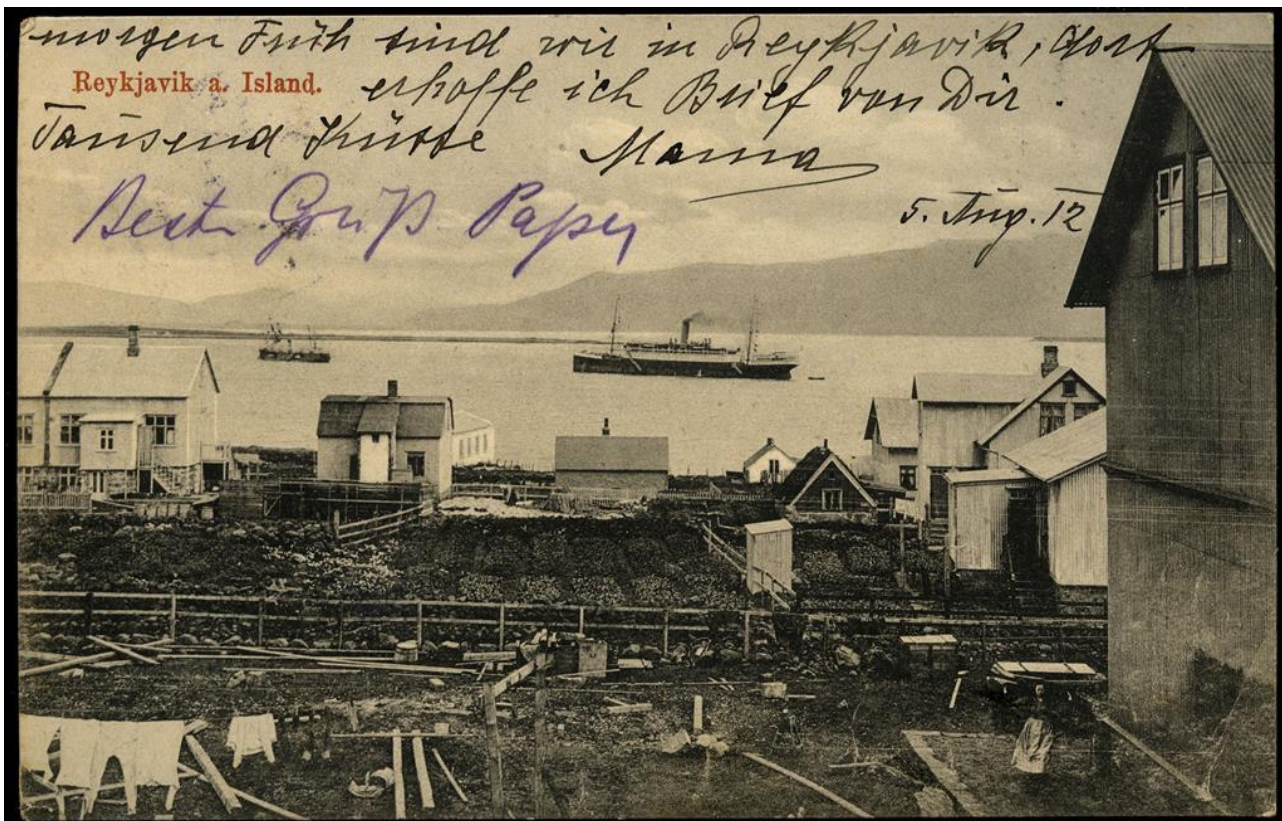 morgen Früh sind wir in Reykjavik, dort
Reykjavik a. Island.
erhoffe ich Brief von Dir.
Tausend Küsse Mama
5. Aug. 12
Gruß